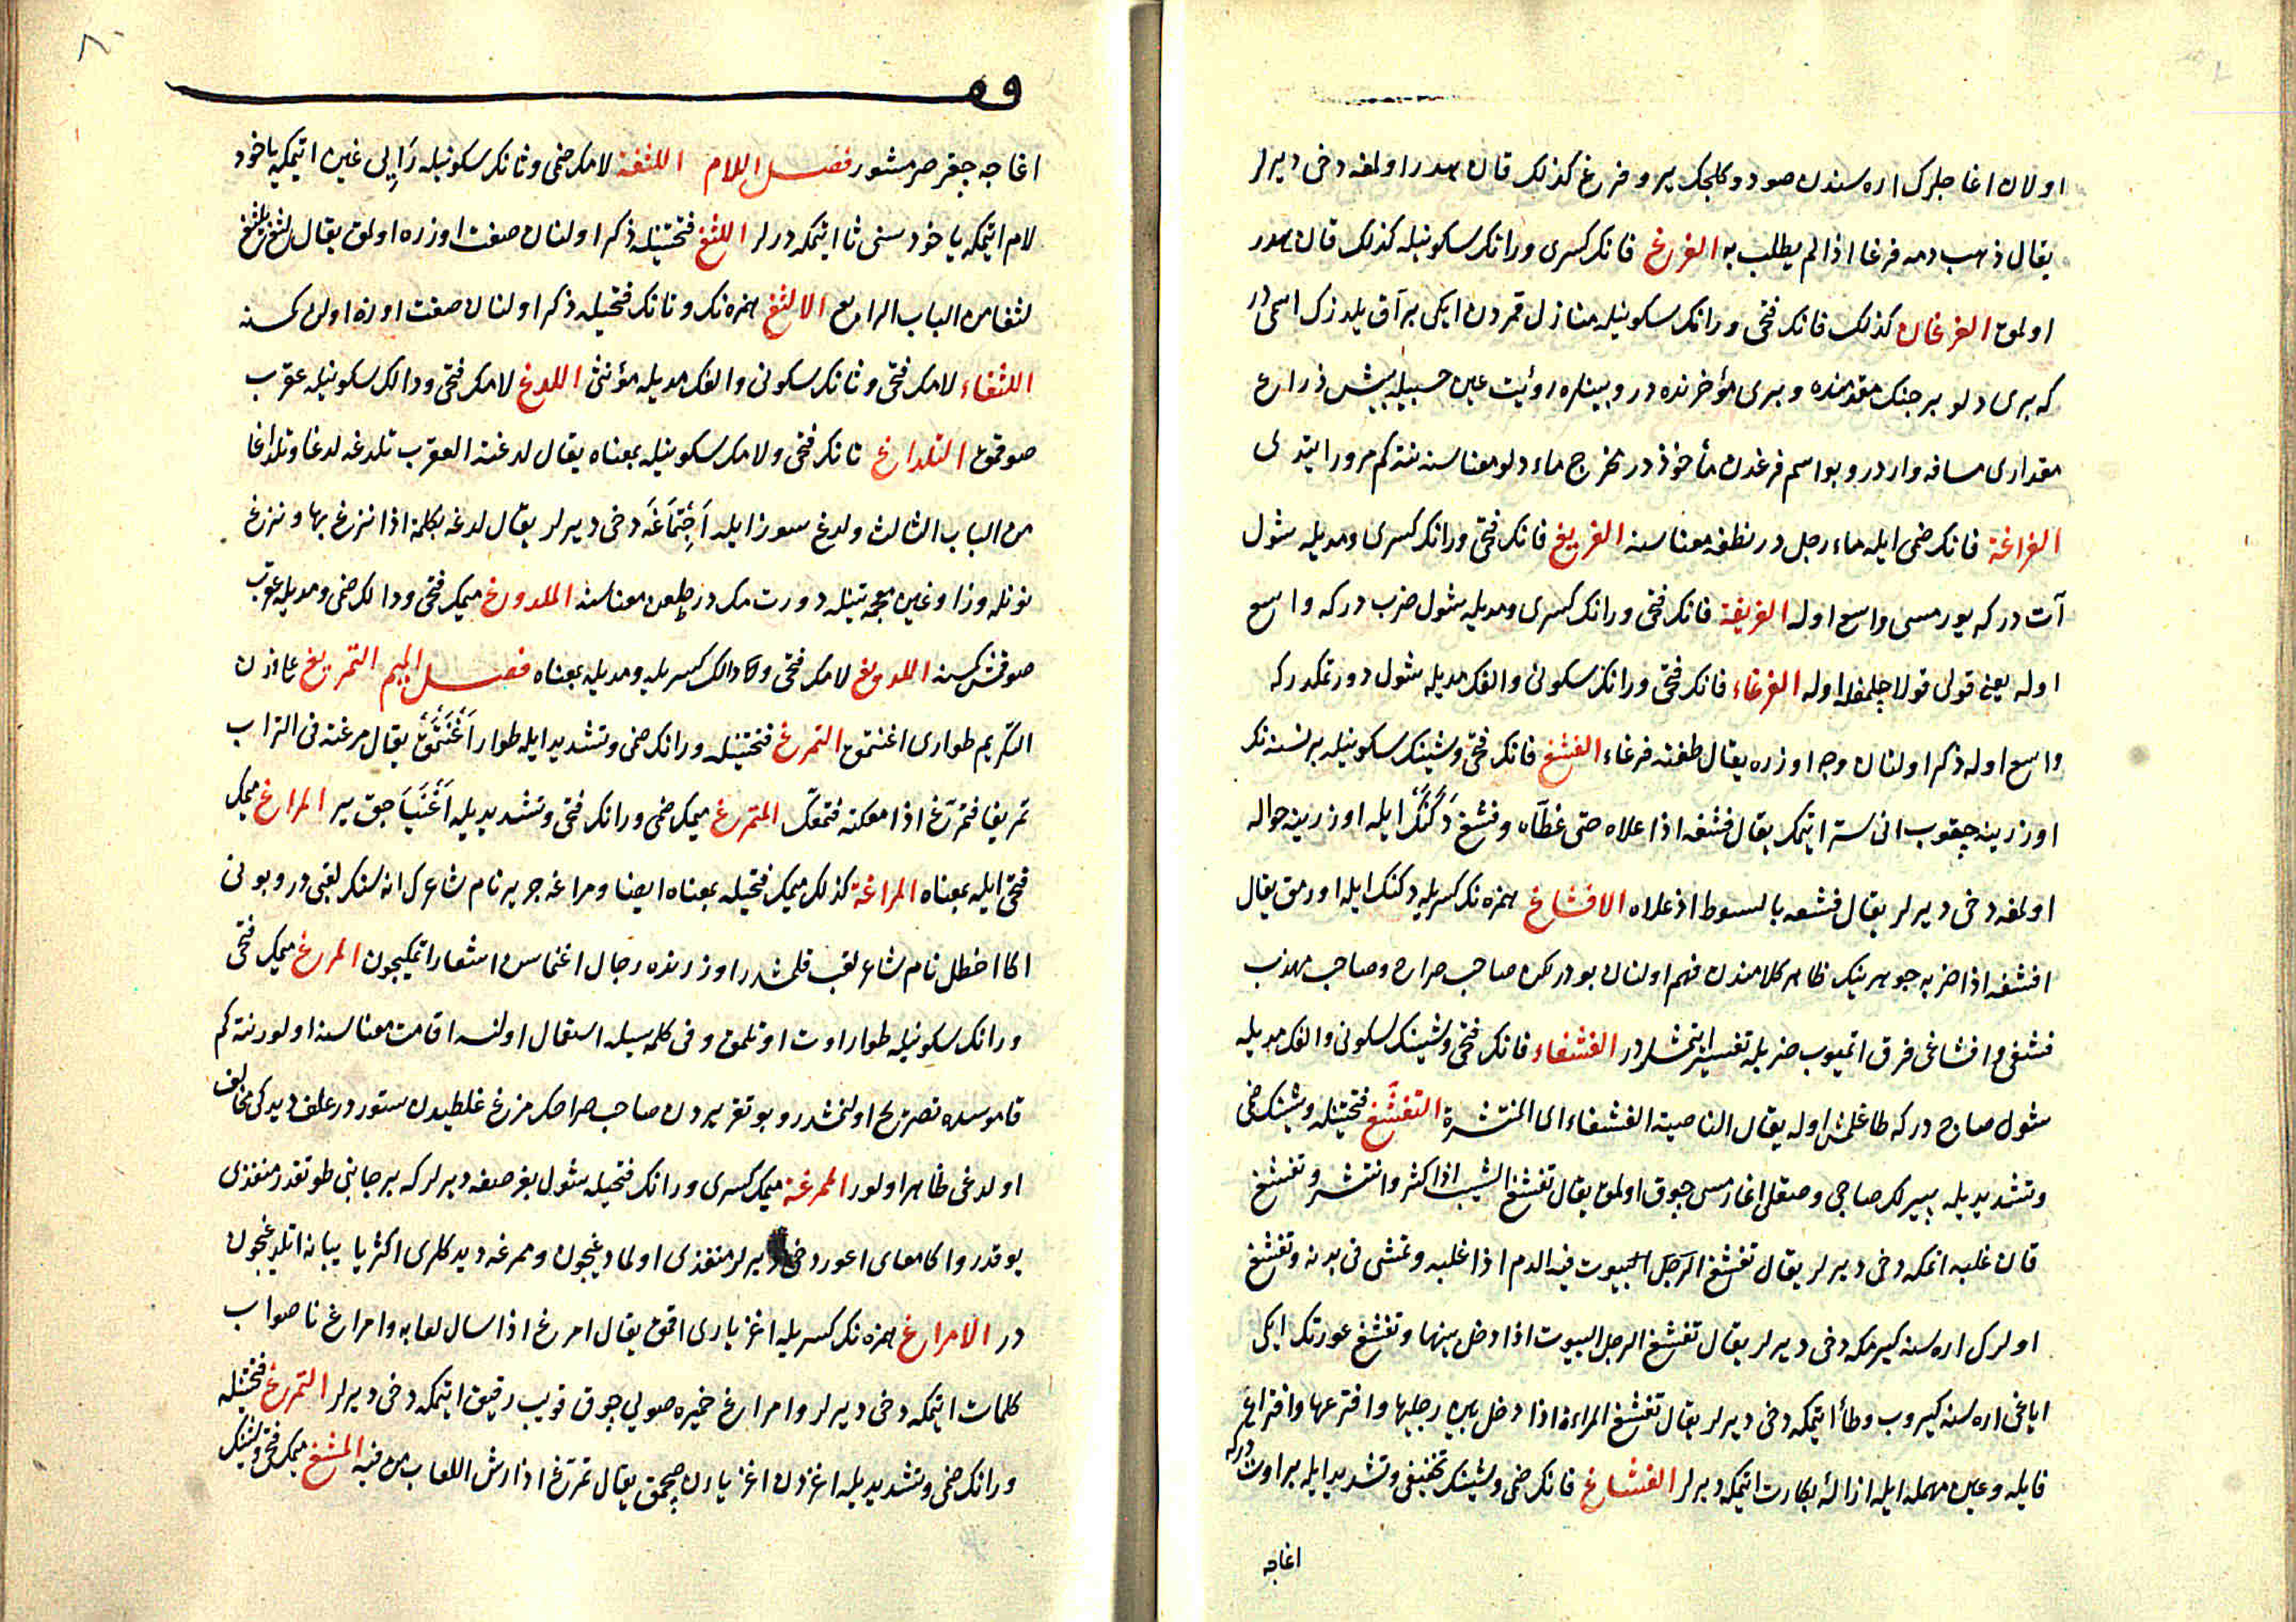 اولان اغاجلرك اره سندن صو دوكلجك یر و فرغ كذلك قان هدر اولمغه دخی دیرلر
یقال ذهب دمه فرغا اذا لم یطلب به الفرغ فانك كسری و رانك سكونیله كذلك قان هدر
اولمق الفرغان كذلك فانك فتحی و رانك سكونیله منازل قمردن ایكی براق یلدزك اسمی در
كه بری دلو برجنك مقدمنده و بری مؤخرنده در و بینلره رؤیت عین حسبیله بیش ذراع
مقداری مسافه واردر و بو اسم فرغدن مأخوذدر مخرج ماء دلو معناسنه نته كم مرور ایتدی
الفراغة فانك ضمی ایله ماء رجل در نطفه معناسنه الفریغ فانك فتحی و رانك كسری و مدیله شول
آت در كه یورمسی واسع اوله الفریغة فانك فتحی و رانك كسری و مدیله شول ضرب در كه واسع
اوله یعنی قولی قولاجلمغله اوله الفرغاء فانك فتحی و رانك سكونی و الفك مدیله شول دورتمكدر كه
واسع اوله ذكر اولنان وجه اوزره یقال طعنة فرغاء الفشغ فانك فتحی و شینك سكونیله بر نسنه نك
اوزرینه چیقوب انی ستر ایتمك یقال فشغه اذا علاه حتی غطاه و فشغ دَكَنَك ایله اوزرینه حواله
اولمغه دخی دیرلر یقال فشغه بالسوط اذ علاه الافشاغ همزه نك كسریله دكنك ایله اورمق یقال
افشغه اذا ضربه جوهرینك ظاهر كلامندن فهم اولنان بودر لكن صاحب صراح و صاحب مهذب
فشغی و افشاغی فرق اتمیوب ضربله تفسیر ایتمشلردر الفشغاء فانك فتحی و شینك سكونی و الفك مدیله
شول صاج در كه طاغلمش اوله یقال الناصیة الفشغاء ای المنتشرة التفشّغ فتحتینله و شینك ضمی
و تشدیدیله بیرلك صاجی و صقلی اغارمسی جوق اولمق یقال تفشغ الشیب اذا كثر و انتشر و تفشغ
قان غلبه اتمكه دخی دیرلر یقال تفشغ الرجل البیوت فیه الدم اذا غلبه و تمشی فی بدنه و تفشغ
اولرك اره سنه كیرمكه دخی دیرلر یقال تفشغ الرجل البیوت اذا دخل بینها و تفشغ عورتك ایكی
ایاغی اره سنه كیروب وطأ ایتمكه دخی دیرلر یقال تفشغ المراءة اذا دخل بین رجلیها و افترعها و افتراع
فایله و عین مهمله ایله ازالهٔ بكارت ایتمكه دیرلر الفشاغ فانك ضمی و شینك تخفیفی و تشدیدی ایله بر اوت در كه
اغاجه
٨٠
اغاجه جیقر صرمشور فصل اللام اللثغة لامك ضمی و ثانك سكونیله رَایِ‌لی غین اتیمكه یاخود
لام ایتمكه یاخود سنی ثا ایتمكه درلر اللثغ فتحتینله ذكر اولنان صفت اوزره اولمق یقال لثغ یلثغ
لثغا من الباب الرابع الالثغ همزه نك و ثانك فتحیله ذكر اولنان صفت اوزه اولن كمسنه
اللثغاء لامك فتحی و ثانك سكونی و الفك مدیله مؤنثی اللدغ لامك فتحی و دالك سكونیله عقرب
صوقمق التلداغ تانك فتحی و لامك سكونیله بمعناه یقال لدغته العقرب تلدغه لدغا و تلداغا
من الباب الثالث و لدغ سوز ایله اَجِتْماغَه دخی دیرلر یقال لدغه بكلمة اذا نزغ بها و نزغ
نونله و زا و غین معجمتینله دورتمك در طعن معناسنه الملدوغ میمك فتحی و دالك ضمی و مدیله عقرب
صوقمش كمسنه اللدیغ لامك فتحی و دالك كسریله و مدیله بمعناه فصل المیم التمریغ علی وزن
التكریم طواری اغنتمق التمرغ فتحتینله و رانك ضمی و تشدید ایله طوار اَغْنَمَق یقال مرغته فی التراب
تمریغا فتمرّغ اذا معكته فتمعك المتمرغ میمك ضمی و رانك فتحی و تشدیدیله اَغْنَیَاجَق یر المراغ میمك
فتحی ایله بمعناه المراغة كذلك میمك فتحیله بمعناه ایضا و مراغه جریر نام شاعرك اناسنك لقبی در و بونی
اكا اخطل نام شاعر لقب قلمشدر اوزرنده رجال اغنماسن اشعار اتمكیجون المرغ میمك فتحی
و رانك سكونیله طوار اوت اوتلمق و فی كلمه سیله استعمال اولنسه اقامت معناسنه اولور نته كم
قاموسده تصریح اولنمشدر و بو تقریردن صاحب صراحك مرغ غلطیدن ستور در علف دیدكی مخالف
اولدغی ظاهر اولور الممرغة میمك كسری و رانك فتحیله شول بغرصغه دیرلر كه بر جانبی طوتقدر منفذی
یوقدر و اكا معای اعور دخی دیرلر منفذی اولمادیغیجون و ممرغه دیدكلری اكثر یا یبانه اتلدیغیجون
در الامراغ همزه نك كسریله اغز یاری اقمق یقال امرغ اذا سال لعابه و امراغ ناصواب
كلمات ایتمكه دخی دیرلر و امراغ خمیره صویی جوق قویب رقیق ایتمكه دخی دیرلر التمرغ فتحتینله
و رانك ضمی و تشدیدیله اغزدن اغز یارن صچمق یقال تمرّغ اذا رش اللعاب من فیه المشغ میمك فتحی و شینك